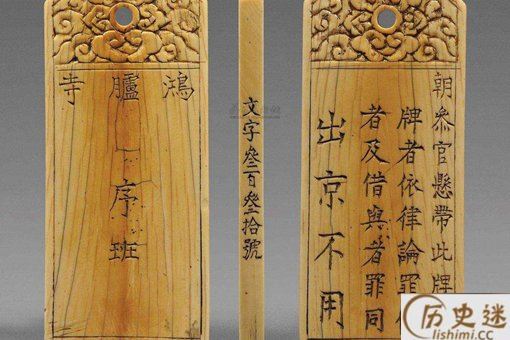 鴻臚寺
序班
文字叄百叄拾號
朝叅官懸帶此牌
牌者依律論罪
者及借與者罪同
出京不用
历史迷
lishimi.cc